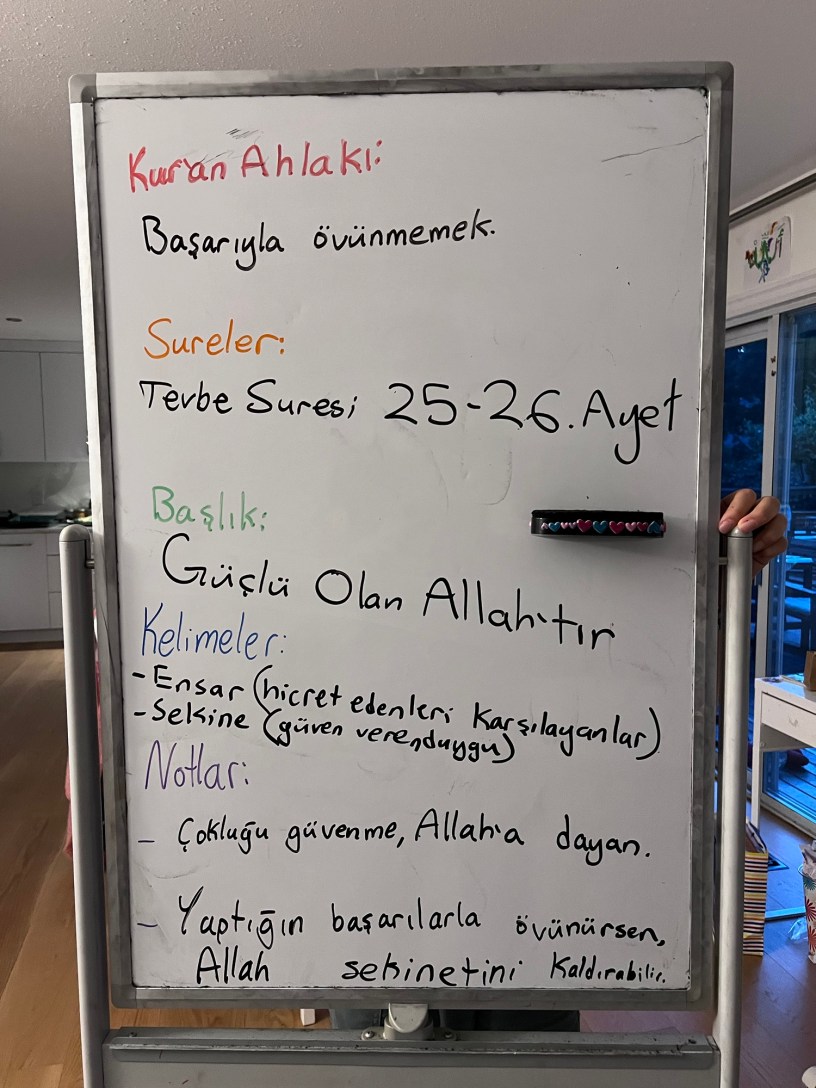 Kur'an Ahlakı:
Başarıyla övünmemek.
Sureler:
Tevbe Suresi 25-26. Ayet
Başlık:
Güçlü Olan Allah'tır
Kelimeler:
- Ensar (hicret edenleri karşılayanlar)
- Sekine (güven veren duygu)
Notlar:
- Çokluğu güvenme, Allah'a dayan.
- Yaptığın başarılarla övünürsen,
Allah sekinetini kaldırabilir.